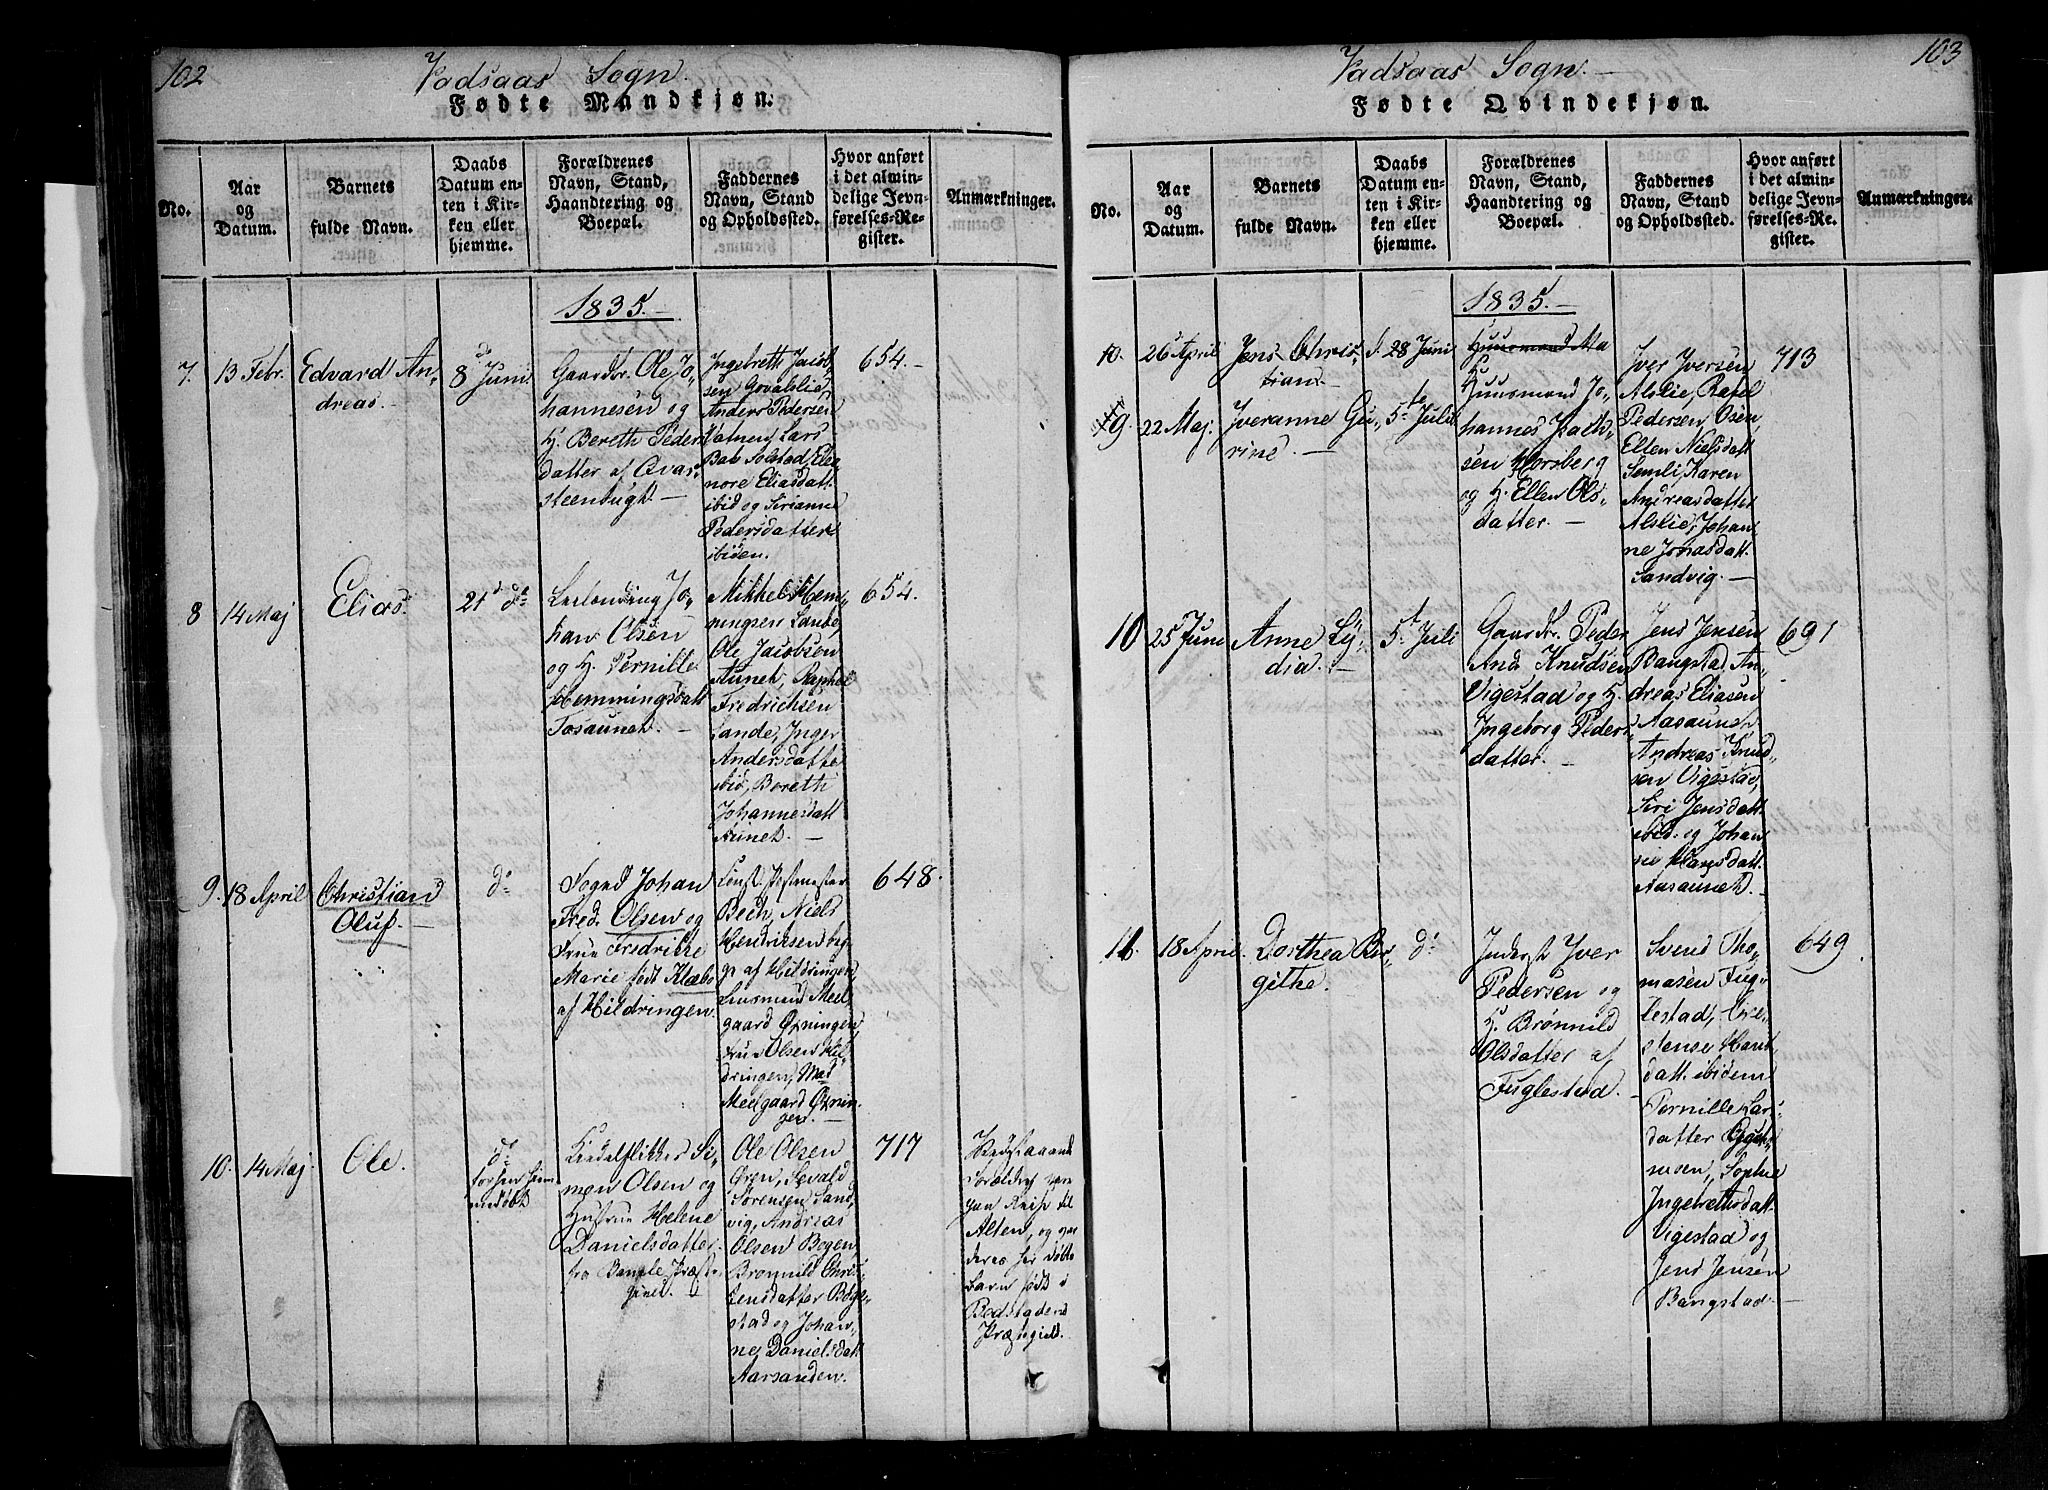 102
Vadsaas Sogn.
Fødte Mandkjøn.
No.
Aar
og
Datum.
Barnets
fulde Navn.
Daabs
Datum en-
ten i Kir-
ken eller
hjemme.
Forældrenes
Navn, Stand,
Haandtering og
Boepæl.
Faddernes
Navn, Stand
og Opholdssted.
Hvor anført
i det almin-
delige Jevn-
førelses-Re-
gister.
Anmærkninger.
1835.
7.
13 Febr.
Edvard An-
dreas.
8de Juni.
Gaardbr. Ole Jo-
hannesen og
H. Bereth Peders
datter af
Ingebreth Jacob-
sen
Anders Pedersen
Vatnen, Lars
Solstad, Ele-
nore Eliasdatt.
ibid og Sirianne
Pedersdatter
ibiden.
654.
8
14 Maj
Elias.
21de do
Jo-
han Olsen
og H. Pernille
Hemmingsdatt
Tosaunet.
Mikkel Hem-
mingsen Lande,
Ole Jacobsen
Aunet, Raphel
Fredrichsen
Lande, Inger
Andersdatter
ibid, Bereth
Johannesdatt
Aunet.
654.
9.
18 April
Christian
Oluf.
do
Foged Johan
Fred. Olsen og
Frue Fredrikke
Marie født Klæbo
af Hildringen.
Const. Postmester
Bech, Niels
Hendriksen
af Hildringen,
Meel-
gaard Øxningen,
Frue Olsen Hil-
dringen, Mad
Meelgaard Øxnin-
gen.
648.
10.
14 Maj.
Ole.
do
Si-
mon Olsen og
Hustrue Helene
Danielsdatter
fra Præste-
gjeld.
Ole Olsen
Øren, Sevald
Sørensen Sand-
vig, Andreas
Olsen Bogen,
Brønnild Chris-
tensdatter Bøge-
stad og Johan-
ne Danielsdatt
Aarsanden.
717
Forældre
paa Reise til
Alten, og
deres her døbte
Barn født i
Bedstadens
Præstegield.
103
Vadsaas Sogn.
Fødte Qvindekjøn.
No.
Aar
og
Datum.
Barnets
fulde Navn.
Daabs
Datum en-
ten i Kir-
ken eller
hjemme.
Forældrenes
Navn, Stand,
Haandtering og
Boepæl.
Faddernes
Navn, Stand
og Opholdssted.
Hvor anført
i det almin-
delige Jevn-
førelses-Re-
gister.
Anmærkninger.
1835.
10.
26 April
Jens Chris-
tian.
d. 28 Juni
Huusmand Ma
9.
22 Maj.
Iveranne Gu-
rine.
5te Juli
Huusmand Jo-
hannes
sen Horsberg
og H. Ellen Ols-
datter.
Iver Iversen
Alslie, Rafel
Pedersen, Osen,
Ellen Nielsdatt
Semli, Karen
Andreasdatter
Alslie, Johan-
ne Jonasdatt.
Sandvig.
713
10
25 Juni
Anne Ly-
dia.
5te Juli
Gaardbr. Peder
And. Knudsen
Vigestad og H.
Ingeborg Peders-
datter.
Jens Jensen
Bangstad, An-
dreas Eliasen
Aasaunet
Andreas Knud-
sen Vigestad,
Siri Jensdatt
ibid. og Johan-
ne Hansdatt.
Aasaunet.
691
11.
18 April.
Dorthea Bir-
githe.
do
Inderst Iver
Pedersen og
H. Brønnild
Olsdatter af
Fuglestad.
Svend Tho-
masen Fug-
lestad,
Hans-
datt. ibidem
Pernille Lars-
datter
moen, Sophie
Ingebretsdatt.
Vigestad og
Jens Jensen
Bangstad.
649